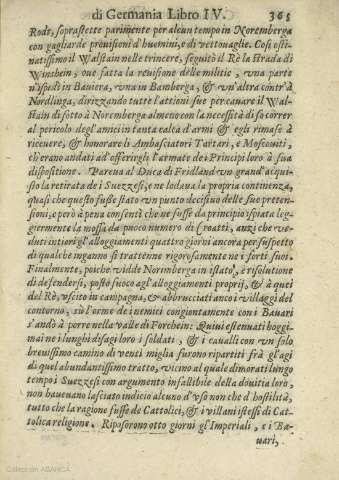 di Germania Libro IV. 365
Rods, soprastette parimente per alcun tempo in Noremberga
con gagliarde prouisioni d'huomini, e di vettouaglie. Cosi osti-
natissimo il Walstain nelle trincere, seguitò il Rè la strada di
Winsheim, oue fatta la reuisione delle militie, vna parte
n'ispedì in Bauiera, vna in Bamberga, & vn'altra contr'à
Nordlinga, dirizzando tutte l'attioni sue per cauare il Wal-
stain di sotto à Noremberga almeno con la necessità di soccorrer
al pericolo degl'amici in tanta calca d'armi & egli rimase à
riceuere, & honorare li Ambasciatori Tartari, e Moscouiti,
ch'erano andati ad offerirgli l'armate dei Principi loro à sua
dispositione. Pareua al Duca di Fridland vn grand'acqui-
sto la retirata dei Suezzesi, e ne lodaua la propria continenza,
quasi che questo fusse stato vn punto decisiuo delle sue preten-
sioni, e però à pena consentì che ne fusse da principio ispiata leg-
giermente la mossa da puoco numero di Croatti, anzi che ve-
duti intieri gl'alloggiamenti quattro giorni ancora per suspetto
di qualche inganno si trattenne rigorosamente ne i forti suoi.
Finalmente, poiche vidde Norimberga in istato, e risolutione
di defendersi, posto fuoco agl'alloggiamenti proprij, & à quei
del Rè, vscito in campagna, & abbrucciati anco i villaggi del
contorno, sù l'orme dei nemici congiontamente con i Bauari
s'andò à porre nella valle di Forcheim: Quiui estenuati hoggi-
mai ne i lunghi disagi loro i soldati, & i caualli con vn solo
breuissimo camino di venti miglia furono ripartiti frà gl'agi
di quel abundantissimo tratto, vicino al quale dimorati lungo
tempo i Suezzesi con argumento infallibile della douitia loro,
non haueuano lasciato indicio alcuno d'vso non che d'hostilità,
tutto che la ragione fusse de Cattolici, & i villani istessi di Cat-
tolica religione. Riposorono otto giorni gl'Imperiali, e i Ba-
uari,
Colección ABANCA